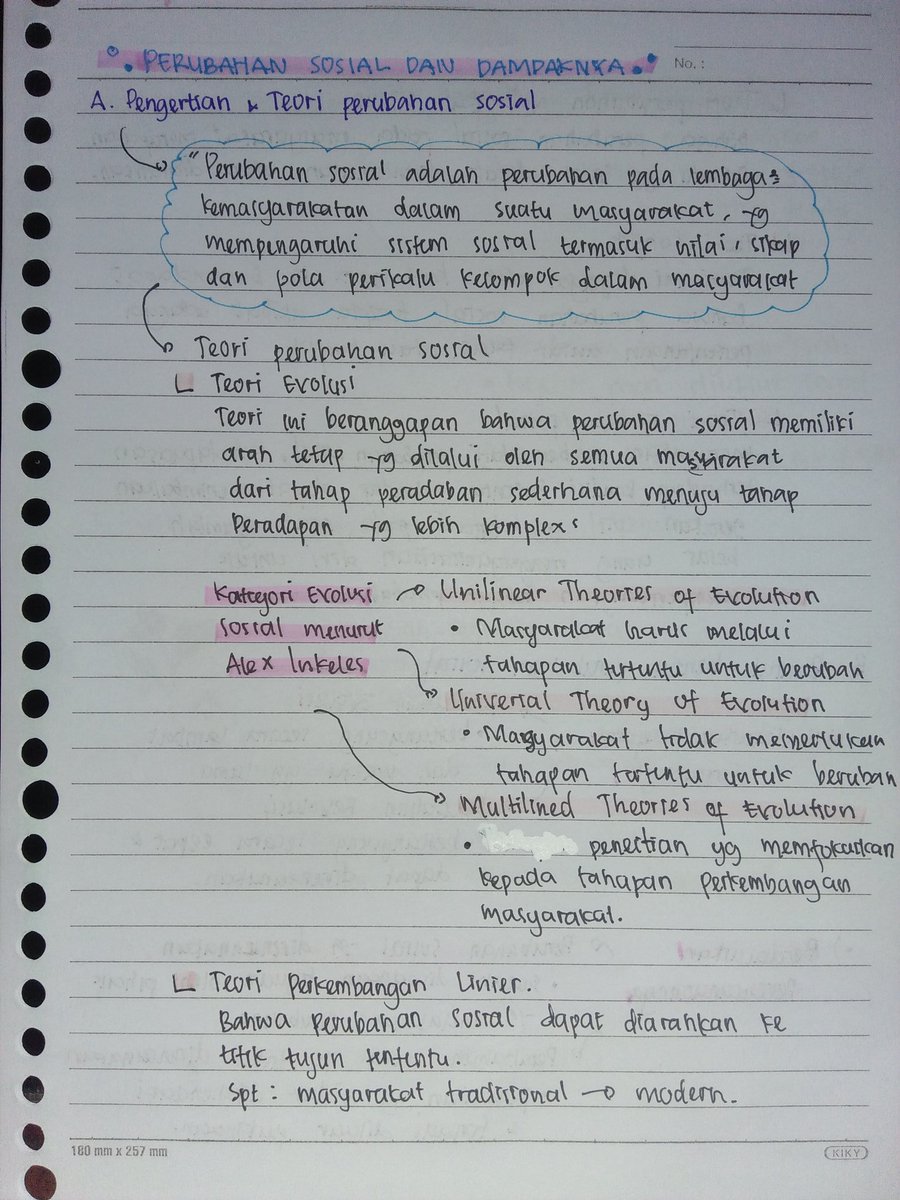 PERUBAHAN SOSIAL DAN DAMPAKNYA.
No. :
A. Pengertian & Teori perubahan sosial
"Perubahan sosial adalah perubahan pada lembaga2
kemasyarakatan dalam suatu masyarakat, yg
mempengaruhi sistem sosial termasuk nilai, sikap
dan pola perikalu kelompok dalam masyarakat
Teori perubahan sosial
Teori Evolusi
Teori ini beranggapan bahwa perubahan sosial memiliki
arah tetap yg dilalui oleh semua masyarakat
dari tahap peradaban sederhana menuju tahap
peradapan yg lebih komplexs
Kategori Evolusi → Unilinear Theories of Evolution
Sosial menurut • Masyarakat harus melalui
Alex Inkeles tahapan tertentu untuk berubah
Universal Theory of Evolution
• Masyarakat tidak memerlukan
tahapan tertentu untuk berubah
Multilined Theories of Evolution
• penelitian yg memfokuskan
kepada tahapan perkembangan
masyarakat.
Teori perkembangan Linier.
Bahwa perubahan sosial dapat diarahkan ke
titik tujuan tententu.
Spt : masyarakat tradisional → modern.
180 mm x 257 mm
KIKY